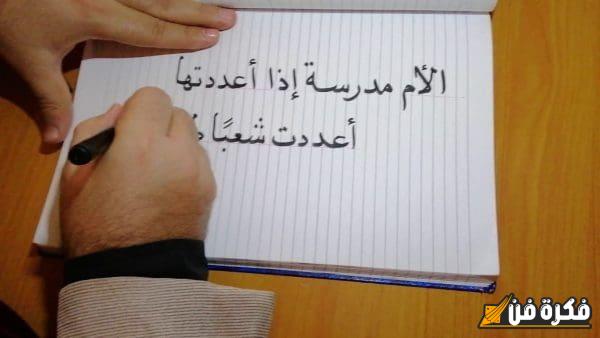 الأم مدرسة إذا أعددتها
أعددت شعبًا
فكرة فن